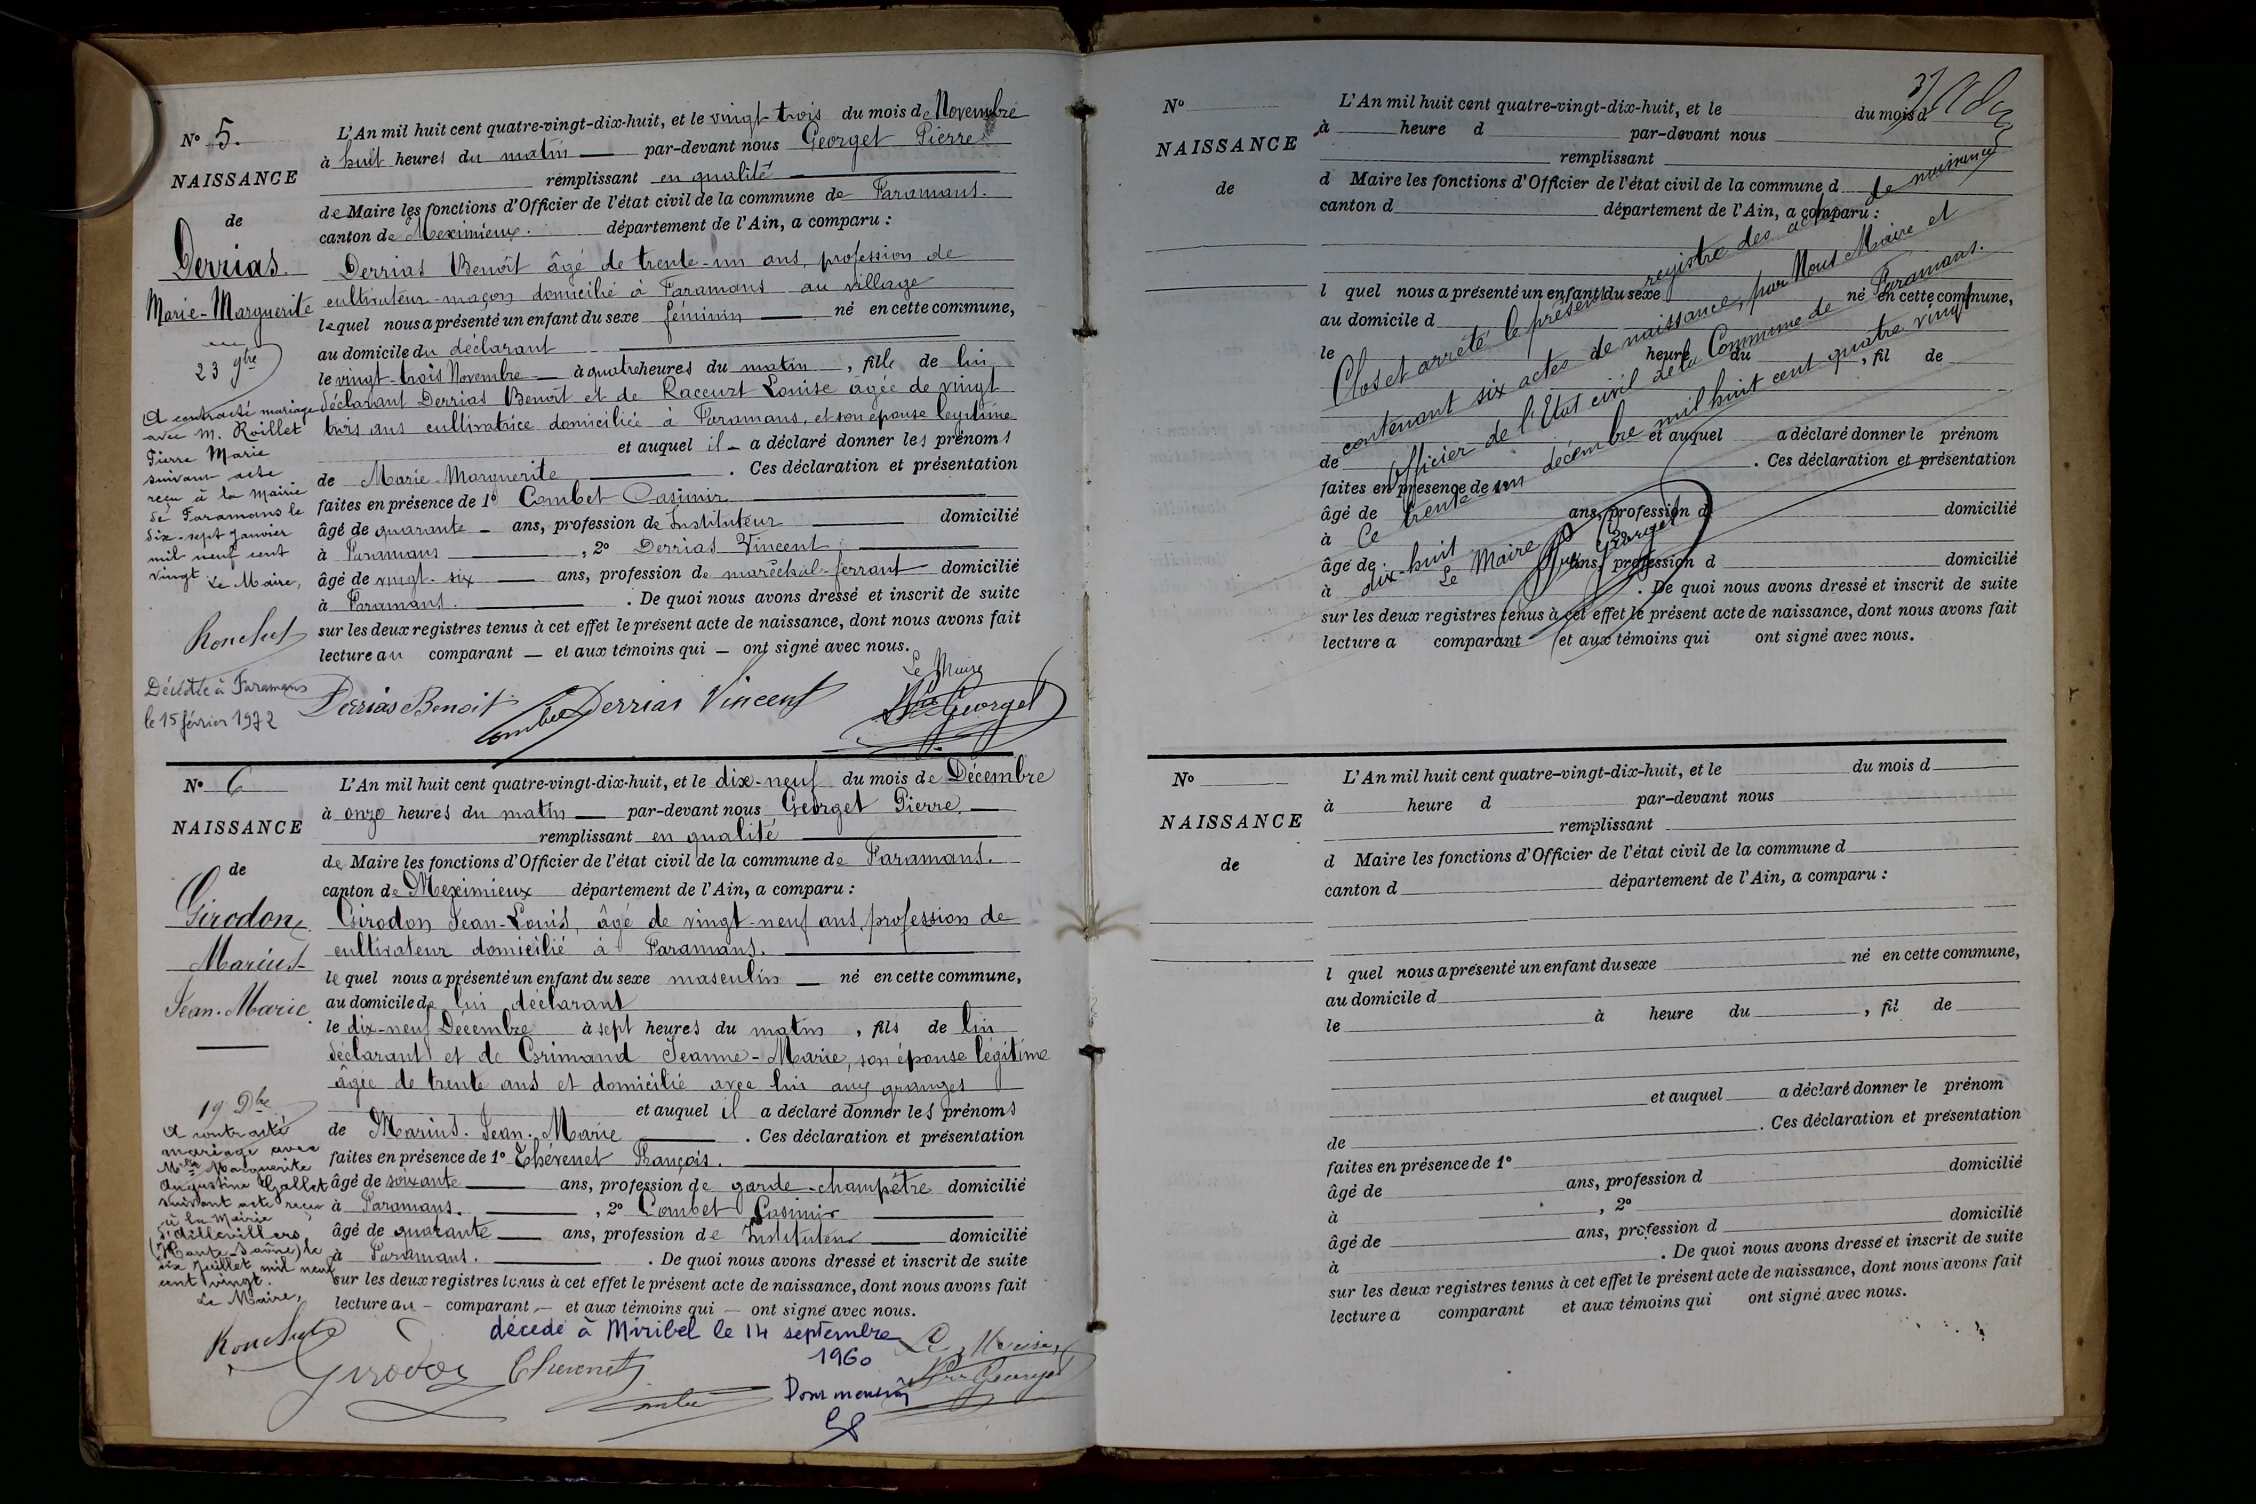 N° 5.
NAISSANCE
de
Derrias
Marie-Marguerite
23 9bre
A contracté mariage
avec M. Roillet
Pierre Marie
suivant acte
reçu à la Mairie
de Faramans le
dix-sept janvier
mil neuf cent
vingt Le Maire,
Décédée à Faramans
le 15 février 1972
L'An mil huit cent quatre-vingt-dix-huit, et le vingt-trois du mois de Novembre
à huit heures du matin — par-devant nous Georget Pierre
remplissant en qualité
de Maire les fonctions d'Officier de l'état civil de la commune de Faramans.
canton de Meximieux. département de l'Ain, a comparu :
Derrias Benoît âgé de trente-un ans, profession de
cultivateur-maçon domicilié à Faramans au village
lequel nous a présenté un enfant du sexe féminin — né en cette commune,
au domicile du déclarant
le vingt-trois Novembre — à quatre heures du matin, fille de lui
déclarant Derrias Benoît et de Raccurt Louise âgée de vingt
trois ans cultivatrice domiciliée à Faramans, et son épouse légitime
et auquel il — a déclaré donner les prénoms
de Marie Marguerite — . Ces déclaration et présentation
faites en présence de 1° Combet Casimir
âgé de quarante — ans, profession de Instituteur — domicilié
à Faramans — , 2° Derrias Vincent
âgé de vingt-six — ans, profession de maréchal-ferrant — domicilié
à Faramans. — . De quoi nous avons dressé et inscrit de suite
sur les deux registres tenus à cet effet le présent acte de naissance, dont nous avons fait
lecture au comparant — et aux témoins qui — ont signé avec nous.
Le Maire
Derrias Benoit Combet Derrias Vincent Georget
N° 6
NAISSANCE
de
Girodon
Marius
Jean-Marie
19 Dbre
A contracté
mariage avec
Mlle Marguerite
Augustine Gallet
suivant acte reçu
à la Mairie
d'Aillevillers
(Haute-Saône) le
six Juillet mil neuf
cent vingt.
Le Maire,
L'An mil huit cent quatre-vingt-dix-huit, et le dix-neuf du mois de Décembre
à onze heures du matin — par-devant nous Georget Pierre —
remplissant en qualité
de Maire les fonctions d'Officier de l'état civil de la commune de Faramans.
canton de Meximieux département de l'Ain, a comparu :
Girodon Jean-Louis, âgé de vingt-neuf ans, profession de
cultivateur domicilié à Faramans.
le quel nous a présenté un enfant du sexe masculin — né en cette commune,
au domicile de lui déclarant
le dix-neuf Décembre à sept heures du matin, fils de lui
déclarant et de Grimand Jeanne-Marie, son épouse légitime
âgée de trente ans et domicilié avec lui aux granges
et auquel il a déclaré donner les prénoms
de Marius-Jean-Marie — . Ces déclaration et présentation
faites en présence de 1° Thévenet François.
âgé de soixante — ans, profession de garde-champêtre domicilié
à Faramans. — , 2° Combet Casimir
âgé de quarante — ans, profession de Instituteur — domicilié
à Faramans. — . De quoi nous avons dressé et inscrit de suite
sur les deux registres tenus à cet effet le présent acte de naissance, dont nous avons fait
lecture au — comparant — et aux témoins qui — ont signé avec nous.
décédé à Miribel le 14 septembre
1960
Le Maire,
Girodon Thévenet Combet Georget
Pour mention
N°
NAISSANCE
de
L'An mil huit cent quatre-vingt-dix-huit, et le du mois d
à heure d par-devant nous
remplissant
d Maire les fonctions d'Officier de l'état civil de la commune d
canton d département de l'Ain, a comparu :
l quel nous a présenté un enfant du sexe né en cette commune,
au domicile d
le à heure du , fil de
et auquel a déclaré donner le prénom
de . Ces déclaration et présentation
faites en présence de 1°
âgé de ans, profession d domicilié
à
âgé de ans, profession d domicilié
à . De quoi nous avons dressé et inscrit de suite
sur les deux registres tenus à cet effet le présent acte de naissance, dont nous avons fait
lecture a comparant et aux témoins qui ont signé avec nous.
Clos et arrêté le présent registre des actes de naissances
contenant six actes de naissance, par Nous Maire et
officier de l'Etat civil de la Commune de Faramans.
Ce trente un décembre mil huit cent quatre vingt
dix-huit
Le Maire
Georget
N°
NAISSANCE
de
L'An mil huit cent quatre-vingt-dix-huit, et le du mois d
à heure d par-devant nous
remplissant
d Maire les fonctions d'Officier de l'état civil de la commune d
canton d département de l'Ain, a comparu :
l quel nous a présenté un enfant du sexe né en cette commune,
au domicile d
le à heure du , fil de
et auquel a déclaré donner le prénom
de . Ces déclaration et présentation
faites en présence de 1°
âgé de ans, profession d domicilié
à , 2°
âgé de ans, profession d domicilié
à . De quoi nous avons dressé et inscrit de suite
sur les deux registres tenus à cet effet le présent acte de naissance, dont nous avons fait
lecture a comparant et aux témoins qui ont signé avec nous.